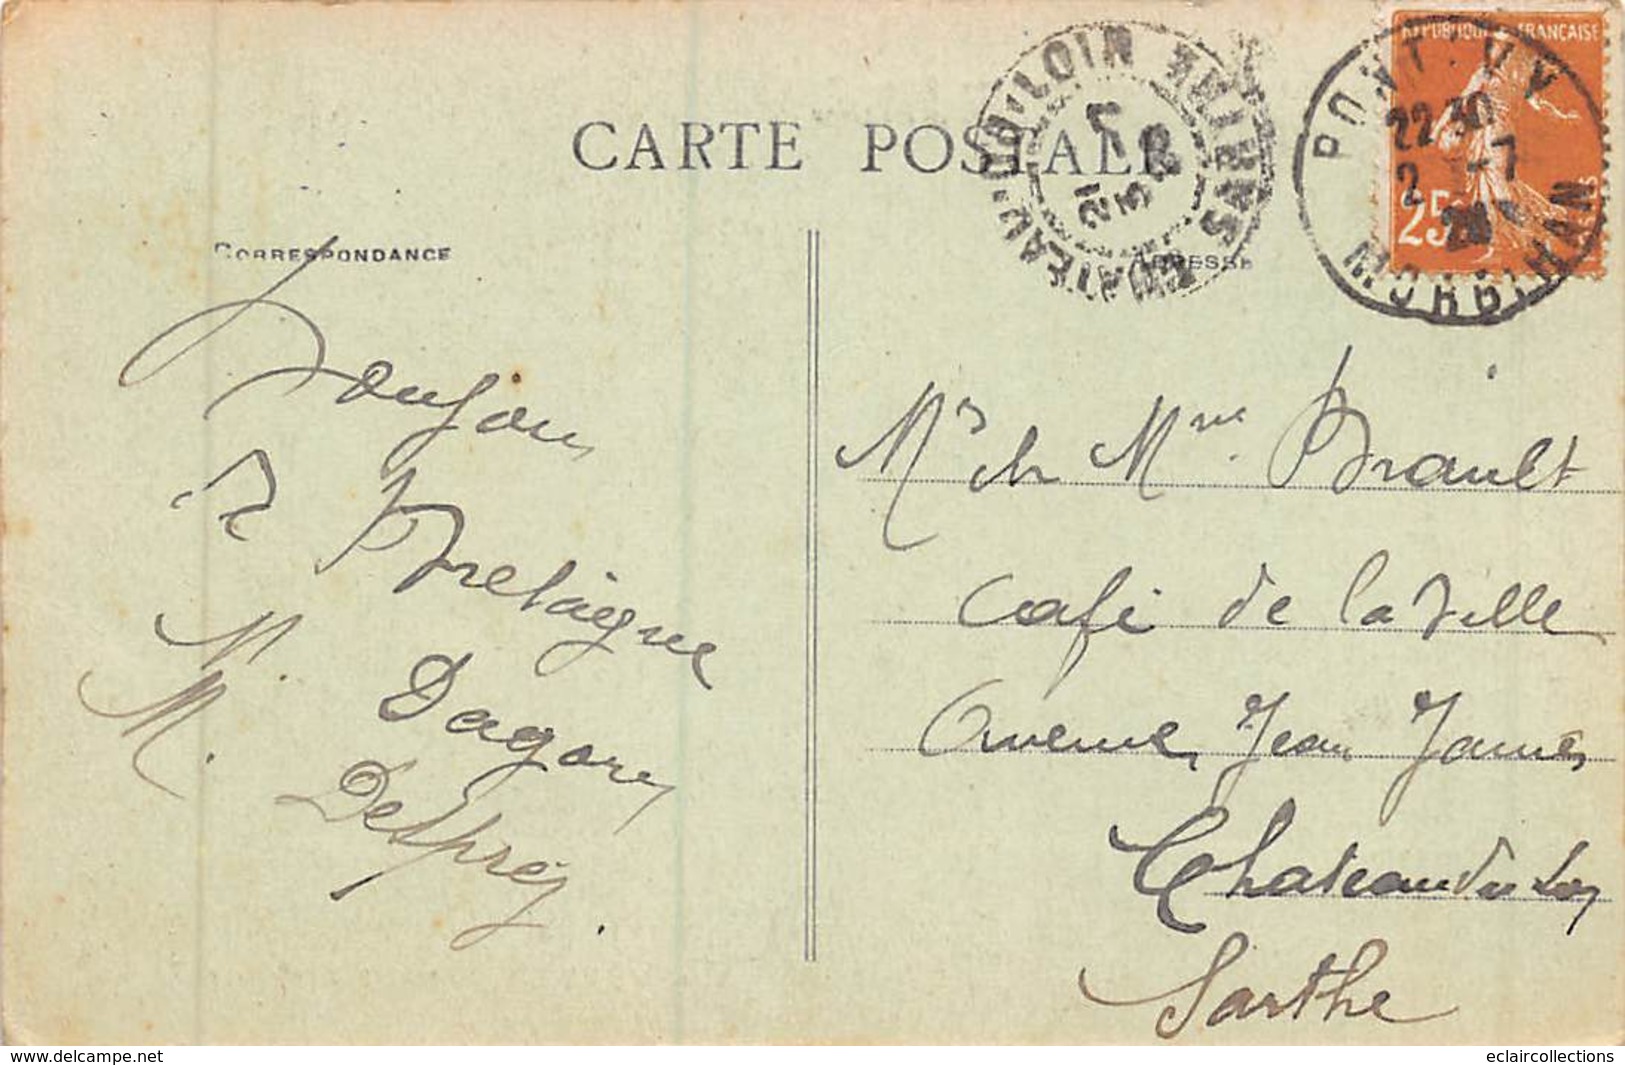 CARTE POSTALE
CORRESPONDANCE
ADRESSE
Bonjour
de Bretagne
M. Dagory
M. Després
RÉPUBLIQUE FRANÇAISE
25
PONTIVY
22 30
2 -7
MORBIHAN
CHATEAU-DU-LOIR SARTHE
Mr et Mme Brault
Café de la Ville
Avenue Jean Jaurès
Chateau du Loir
Sarthe
www.delcampe.net
eclaircollections